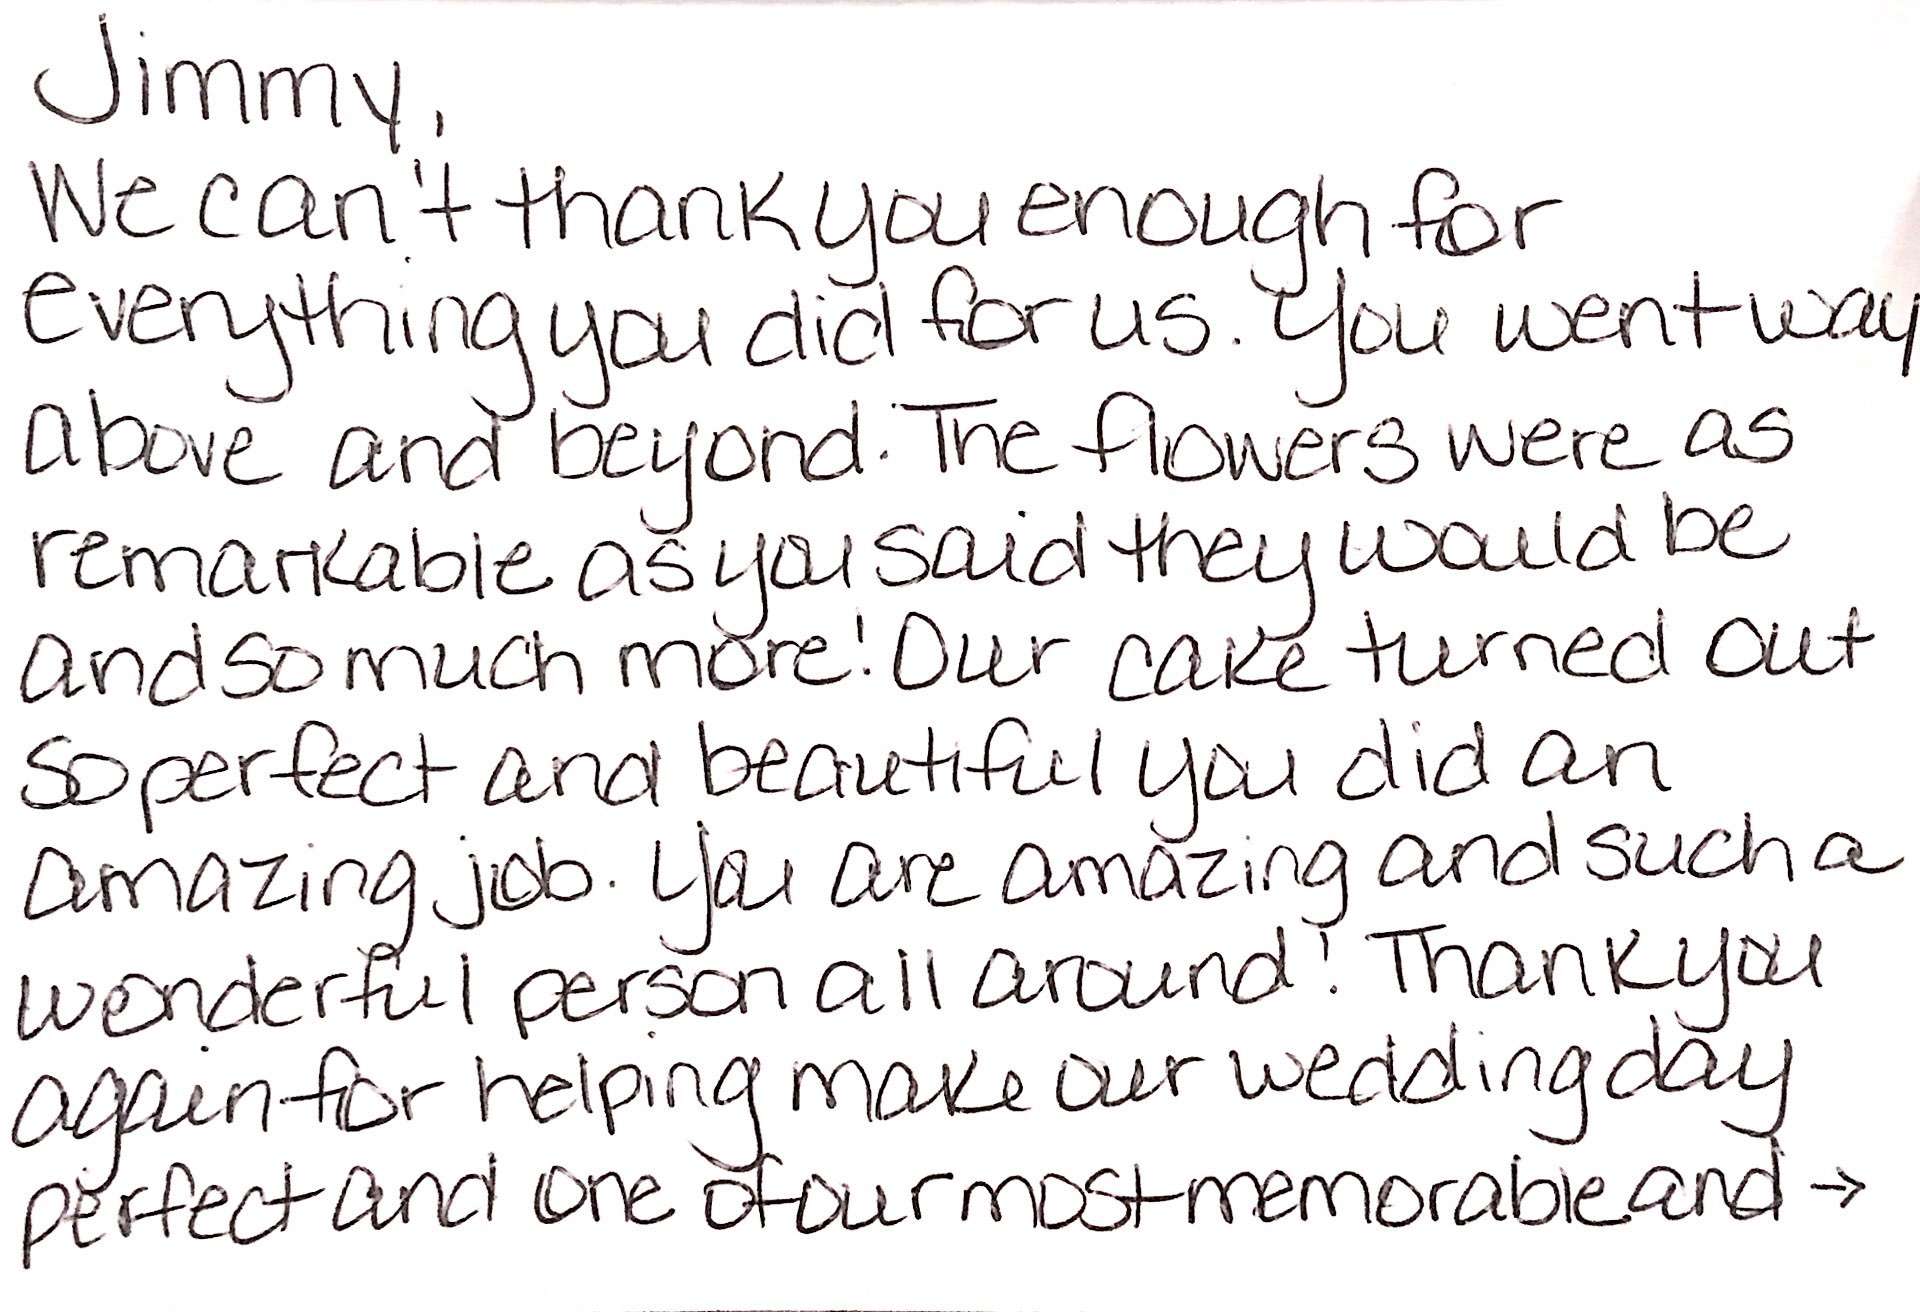 Jimmy,
We can't thank you enough for
everything you did for us. You went way
above and beyond. The flowers were as
remarkable as you said they would be
and so much more! Our cake turned out
so perfect and beautiful you did an
amazing job. You are amazing and such a
wonderful person all around! Thank you
again for helping make our wedding day
perfect and one of our most memorable and →